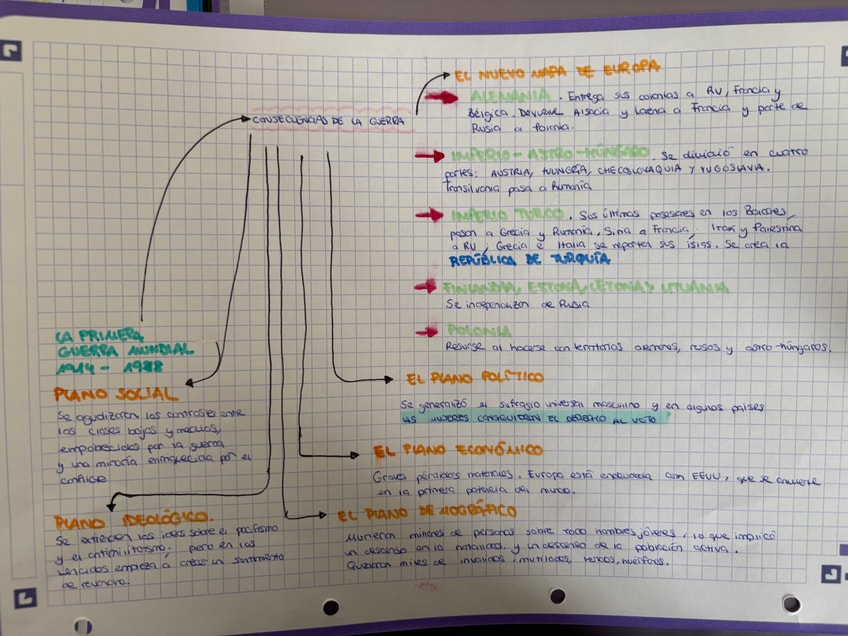 CONSECUENCIAS DE LA GUERRA
EL NUEVO MAPA DE EUROPA
ALEMANIA. Entrega sus colonias a RU, Francia y
Bélgica. Devuelve Alsacia y Lorena a Francia y parte de
Rusia a Polonia.
IMPERIO-ASTRO-HÚNGARO. Se dividió en cuatro
partes: AUSTRIA, HUNGRÍA, CHECOLOVAQUIA Y YUGOSLAVIA.
Transilvania pasa a Rumanía
IMPERIO TURCO. Sus últimas posesiones en los Balcanes,
pasan a Grecia y Rumanía, Siria a Francia, Irak y Palestina
a RU, Grecia e Italia se reparten sus islas. Se crea la
REPÚBLICA DE TURQUÍA
FINLANDIA, ESTONIA, LETONIA Y LITUANIA
Se independizan de Rusia
POLONIA
Resurge al hacerse con territorios alemanes, rusos y astro-húngaros.
LA PRIMERA
GUERRA MUNDIAL
1914 - 1988
PLANO SOCIAL
Se agudizaron los contrastes entre
las clases bajas y medias,
empobrecidas por la guerra
y una minoría enriquecida por el
conflicto
PLANO IDEOLÓGICO.
Se extienden las ideas sobre el pacifismo
y el antimilitarismo, pero en los
vencidos empieza a crecer un sentimiento
de revancha.
EL PLANO POLÍTICO
Se generalizó el sufragio universal masculino y en algunos países
las MUJERES CONSIGUIERON EL DERECHO AL VOTO
EL PLANO ECONÓMICO
Graves pérdidas materiales. Europa está endeudada con EEUU, que se convierte
en la primera potencia del mundo.
EL PLANO DEMOGRÁFICO
Murieron millones de personas sobre todo hombres jóvenes, lo que implicó
un descenso en la natalidad, y un descenso de la población activa.
Quedaron miles de inválidos, mutilados, huérfanos.